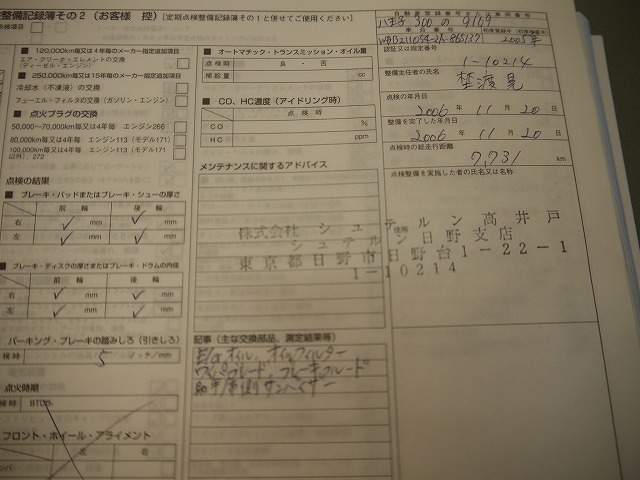 整備記録簿その2（お客様 控）[定期点検整備記録簿その1と併せてご使用ください]
点検項目
■ 120,000km毎又は4年毎のメーカー指定追加項目
エア・クリーナ・エレメントの交換
(ディーゼル・エンジン)
■ 250,000km又は15年毎のメーカー指定追加項目
冷却水（不凍液）の交換
フューエル・フィルタの交換（ガソリン・エンジン）
■ 点火プラグの交換
50,000〜70,000km又は4年毎 エンジン266
80,000km毎又は4年毎 エンジン113（モデル171）
100,000km毎又は4年毎 エンジン113（モデル171
以外）、272
点検の結果
■ ブレーキ・パッドまたはブレーキ・シューの厚さ
前輪 後輪
右 ✓ mm ✓ mm
左 ✓ mm ✓ mm
■ ブレーキ・ディスクの厚さまたはブレーキ・ドラムの内径
前輪 後輪
右 ✓ mm ✓ mm
左 ✓ mm ✓ mm
パーキング・ブレーキの踏みしろ（引きしろ）
検時 5 ノッチ/mm
点火時期
検時 BTDC
フロント・ホイール・アライメント
右 左
■ オートマチック・トランスミッション・オイル量
点検時 良・否
補給量 cc
■ CO、HC濃度（アイドリング時）
点検時
CO %
HC ppm
メンテナンスに関するアドバイス
記事（主な交換部品、測定結果等）
E/gオイル、オイルフィルター
ワイパーブレード、ブレーキフルード
助手席側サンバイザー
自動車登録番号または車両番号
八王子 300 の 9169
初度登録年
2005年
認証又は指定番号
1-10214
整備主任者の氏名
点検の年月日
2006 年 11 月 20 日
整備を完了した年月日
2006 年 11 月 20 日
点検時の総走行距離
7,731 km
点検整備を実施した者の氏名又は名称
住所
株式会社 シュテルン高井戸
シュテルン日野支店
東京都日野市日野台1-22-1
1-10214